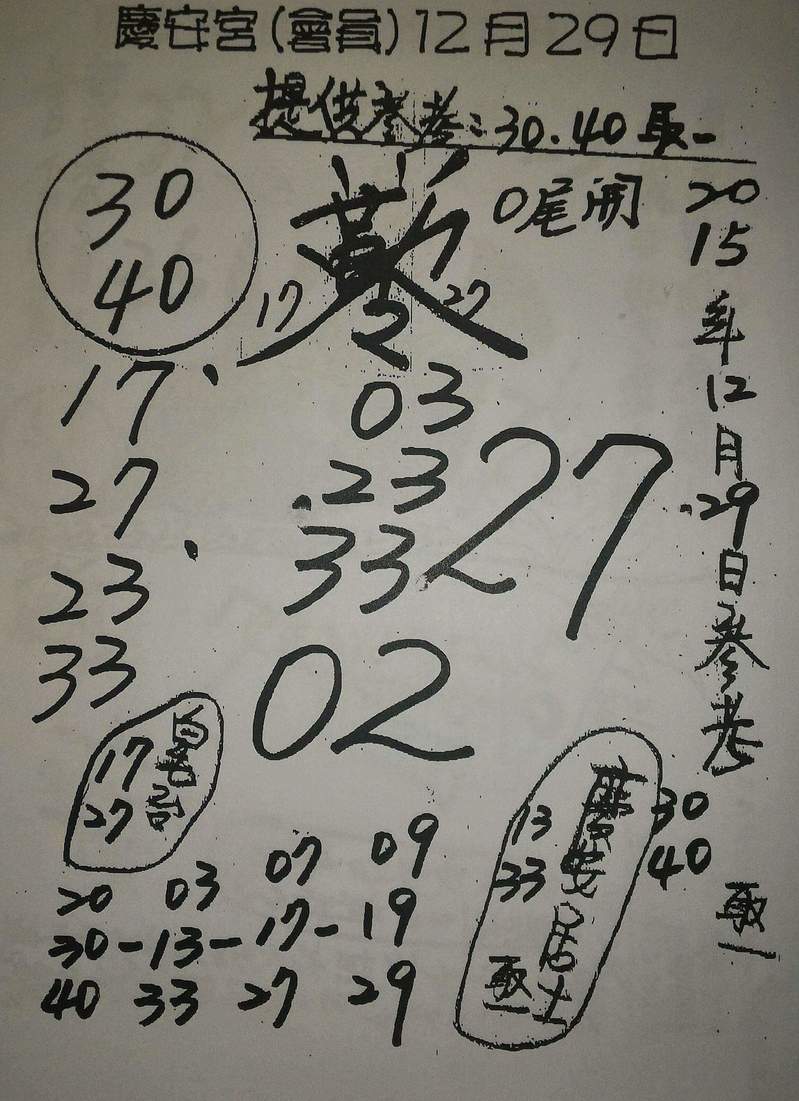 慶安宮(會員)12月29日
提供參考:30.40取一
30
40
17 2 27
0尾開
2015年12月29日參考
17
27
23
33
03
23
33
27
02
17
27
20 03 07 09
30-13-17-19
40 33 27 29
慶安居士
13
33
取一
30
40
取一